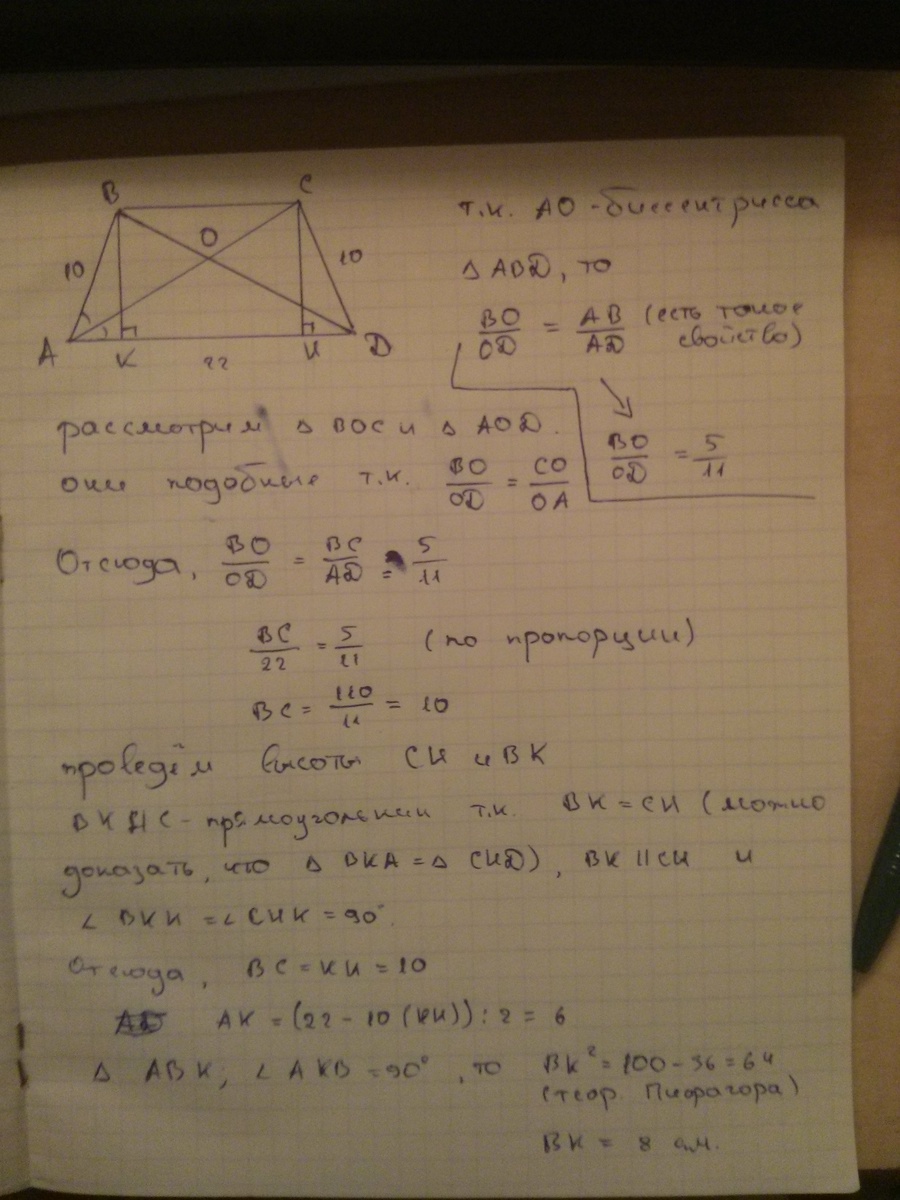 B C
O
10 10
A K H D
22
т.к. AO - биссектрисса
△ ABD, то
BO/OD = AB/AD (есть такое свойство)
BO/OD = 5/11
рассмотрим △ BOC и △ AOD.
они подобные т.к. BO/OD = CO/OA
Отсюда, BO/OD = BC/AD = 5/11
BC/22 = 5/11 (по пропорции)
BC = 110/11 = 10
проведём высоты CH и BK
BKHC - прямоугольник т.к. BK = CH (можно
доказать, что △ BKA = △ CHD), BK || CH и
∠ BKH = ∠ CHK = 90°.
Отсюда, BC = KH = 10
AK = (22 - 10 (KH)) : 2 = 6
△ ABK; ∠ AKB = 90°, то BK² = 100 - 36 = 64
(теор. Пифагора)
BK = 8 см.